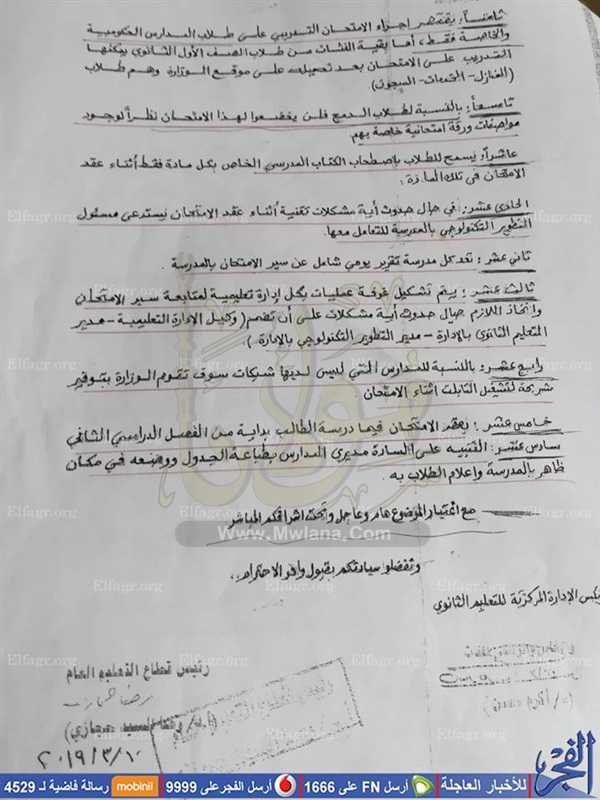 ثامناً: يقتصر إجراء الامتحان التدريبي على طلاب المدارس الحكومية
والخاصة فقط، أما بقية الفئات من طلاب الصف الأول الثانوي يمكنها
التدريب على الامتحان بعد تحميله على موقع الوزارة وهم طلاب
(المنازل - الخدمات - السجون).
تاسعاً: بالنسبة لطلاب الدمج فلن يخضعوا لهذا الامتحان نظراً لوجود
مواصفات ورقة امتحانية خاصة بهم
عاشراً: يسمح للطلاب بإصطحاب الكتاب المدرسي الخاص بكل مادة فقط أثناء عقد
الامتحان في تلك المادة.
الحادى عشر: في حال حدوث أية مشكلات تقنية أثناء عقد الامتحان يستدعى مسئول
التطوير التكنولوجي بالمدرسة للتعامل معها.
ثاني عشر: تعد كل مدرسة تقرير يومي شامل عن سير الامتحان بالمدرسة.
ثالث عشر: يتم تشكيل غرفة عمليات بكل إدارة تعليمية لمتابعة سير الامتحان
واتخاذ اللازم حيال حدوث أية مشكلات على أن تضم (وكيل الإدارة التعليمية - مدير
التعليم الثانوي بالإدارة - مدير التطوير التكنولوجي بالإدارة).
رابع عشر: بالنسبة للمدارس التي ليس لديها شبكات سوف تقوم الوزارة بتوفير
شريحة لتشغيل التابلت أثناء الامتحان.
خامس عشر: يعقد الامتحان فيما درسه الطالب بداية من الفصل الدراسي الثاني
سادس عشر: التنبيه على السادة مديري المدارس بطباعة الجدول ووضعه في مكان
ظاهر بالمدرسة وإعلام الطلاب به.
مع اعتبار الموضوع هام وعاجل وتحت اشرافكم المباشر
www.Mwlana.Com
وتفضلوا سيادتكم بقبول وافر الاحترام،،
رئيس الإدارة المركزية للتعليم الثانوي
رئيس قطاع التعليم العام
حجازي)
٢٠١٩/٣/١٠
Elfagr.org
الفجر
للأخبار العاجلة
أرسل FN على 1666
أرسل الفجر على 9999
mobinil
رسالة فاضية لـ 4529